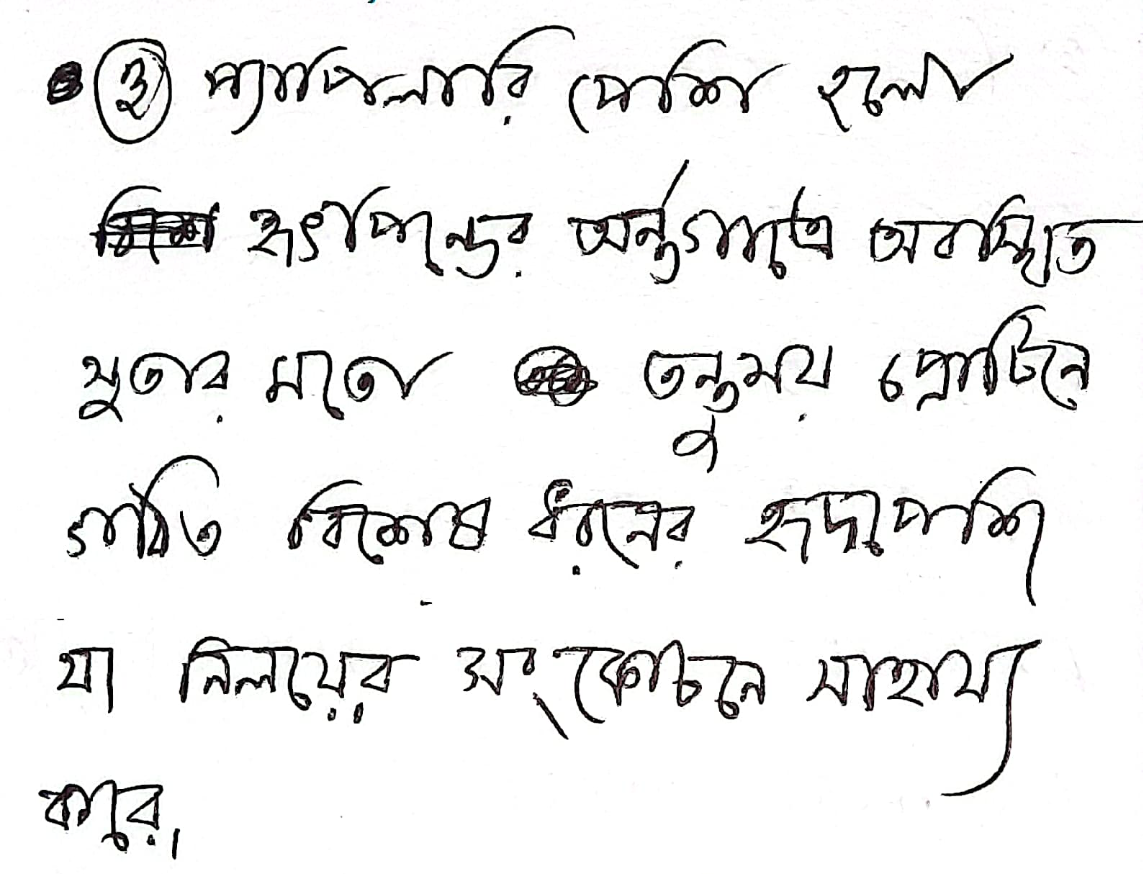 ② প্যাপিলারি পেশি হলো
হৃৎপিন্ডের অর্ন্তগাত্রে অবস্থিত
সুতার মতো তন্তুময় প্রোটিনে
গঠিত বিশেষ ধরনের হৃদপেশি
যা নিলয়ের সংকোচনে সাহায্য
করে।